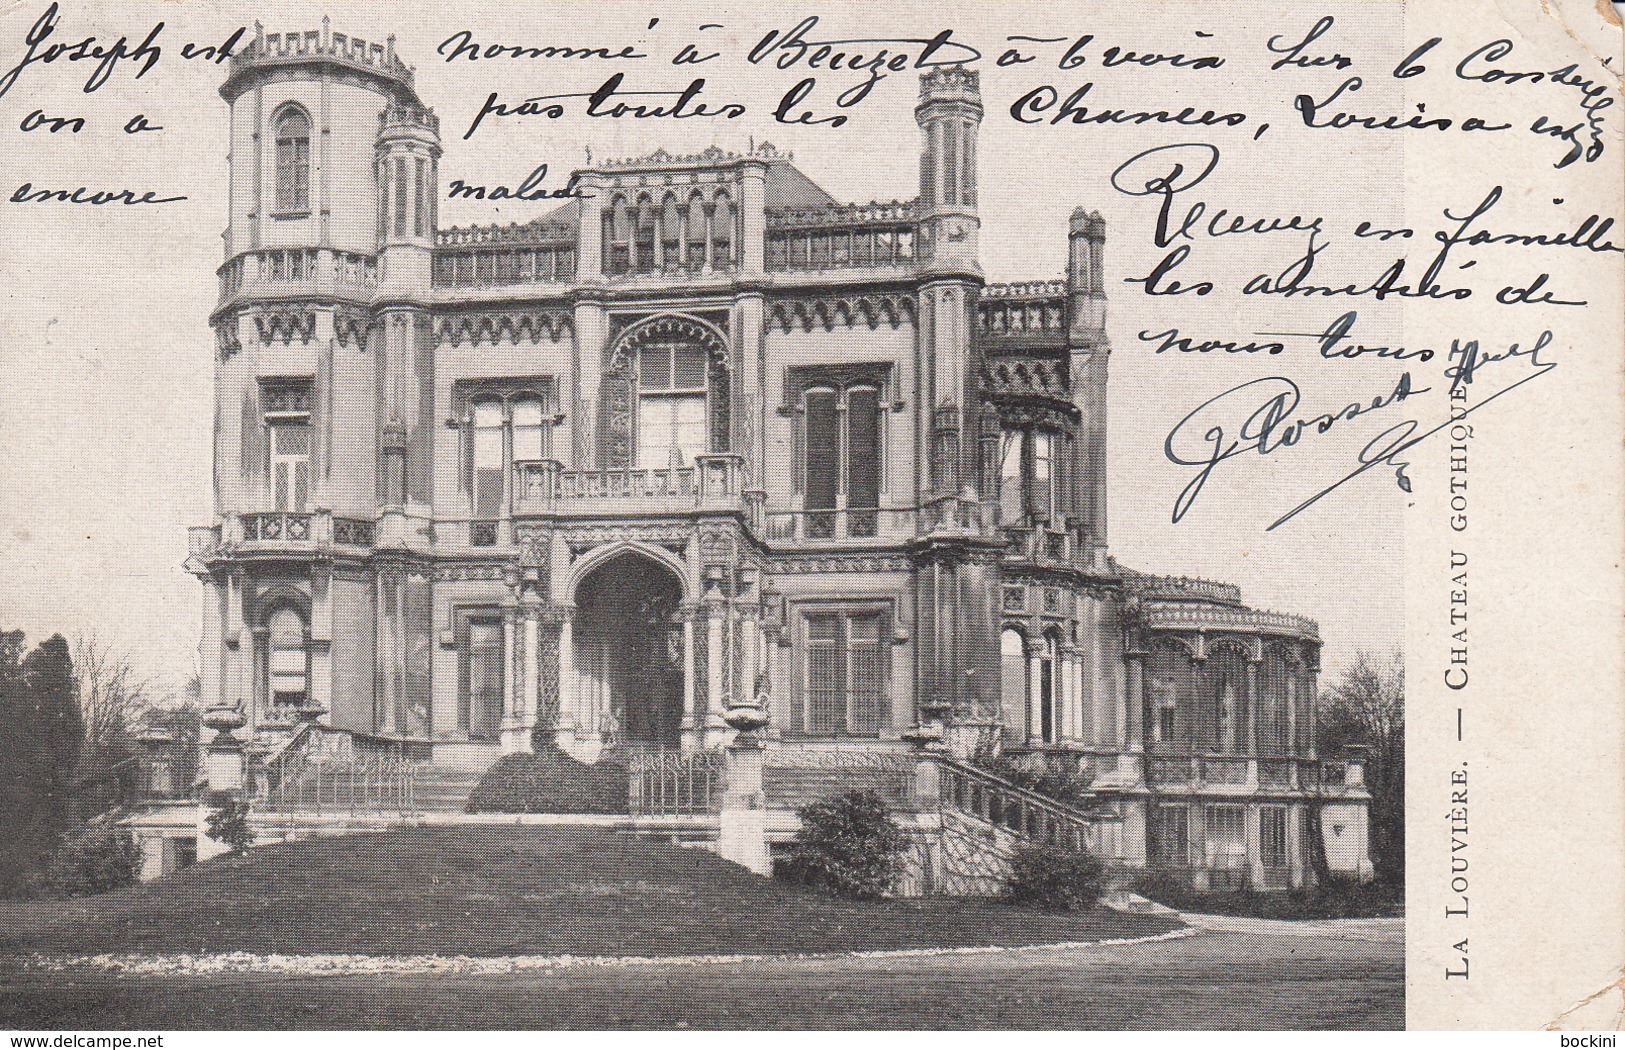 Joseph est nommé à Beuzet à 6 voix sur 6 Conseillers
on a pas toutes les Chances, Louisa est
encore malade
Recevez en famille
les amitiés de
nous tous
LA LOUVIÈRE. — CHATEAU GOTHIQUE
bockini